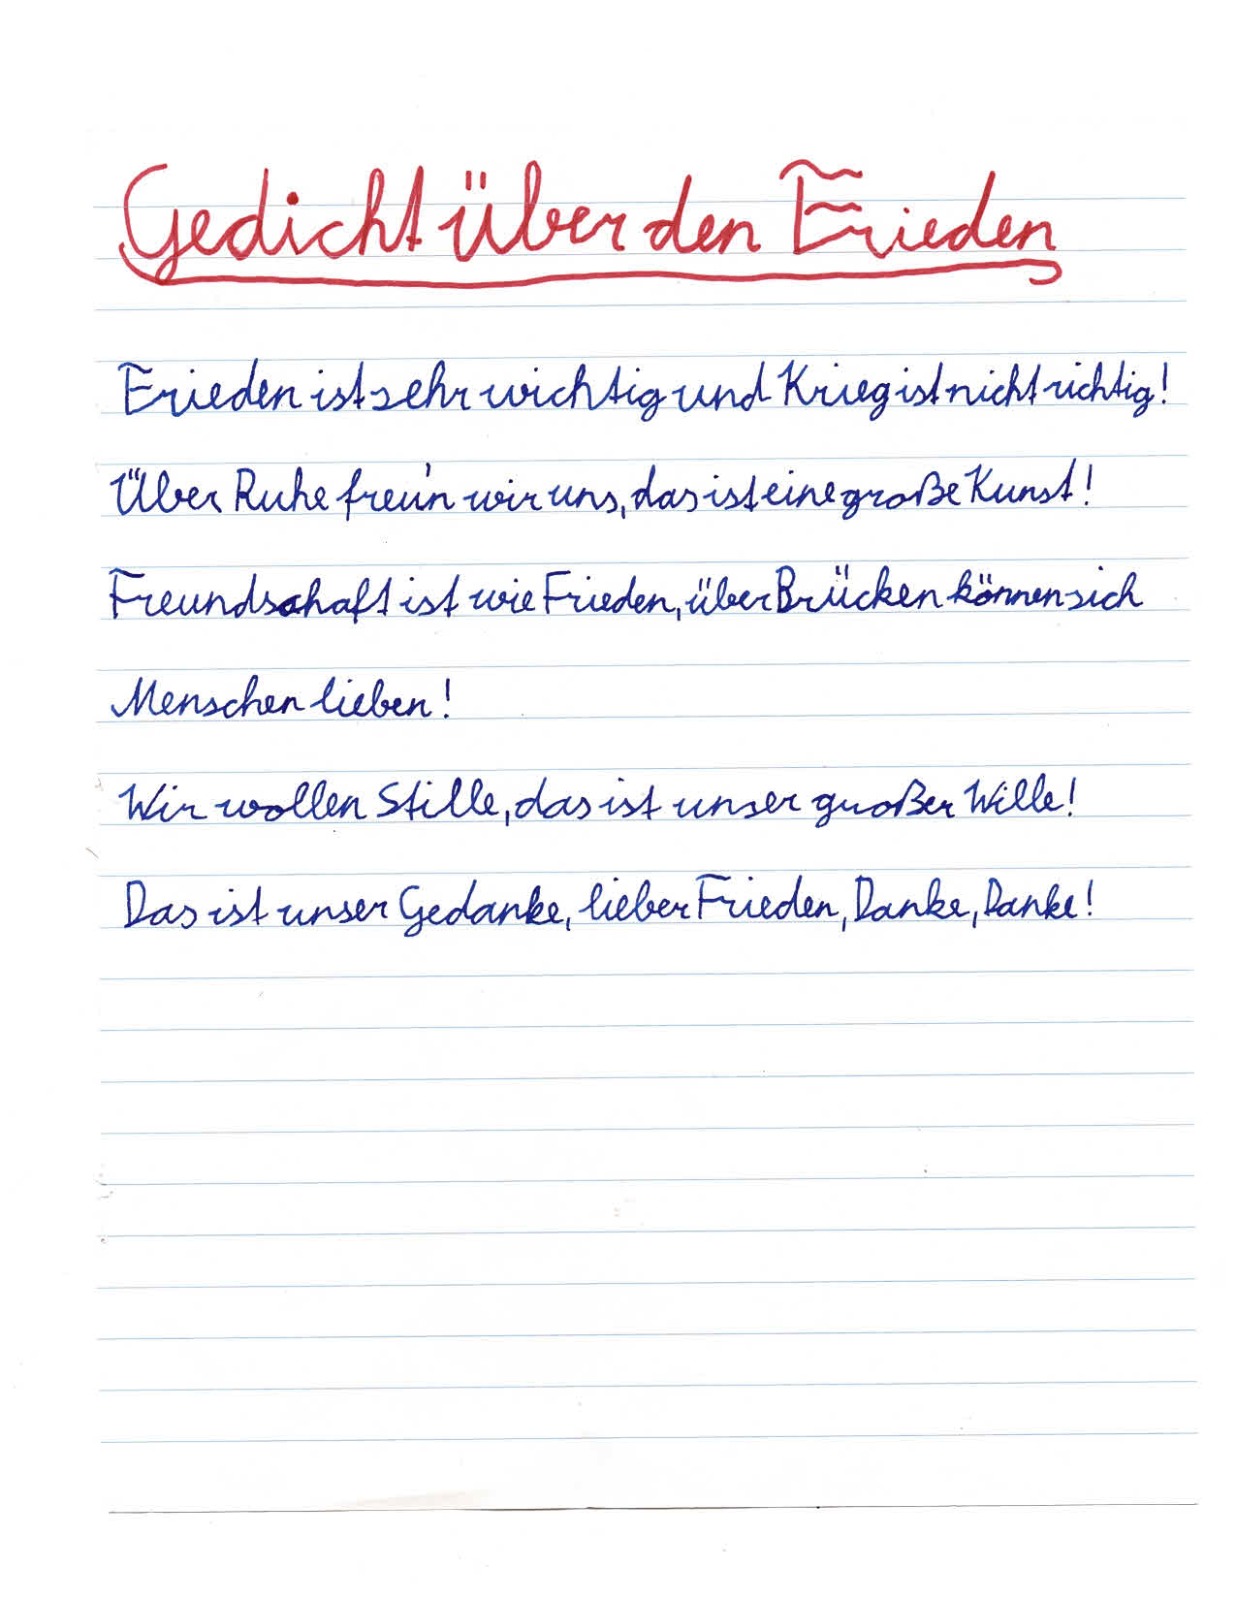 Gedicht über den Frieden
Frieden ist sehr wichtig und Krieg ist nicht richtig!
Über Ruhe freu'n wir uns, das ist eine große Kunst!
Freundschaft ist wie Frieden, über Brücken können sich
Menschen lieben!
Wir wollen Stille, das ist unser großer Wille!
Das ist unser Gedanke, lieber Frieden, Danke, Danke!